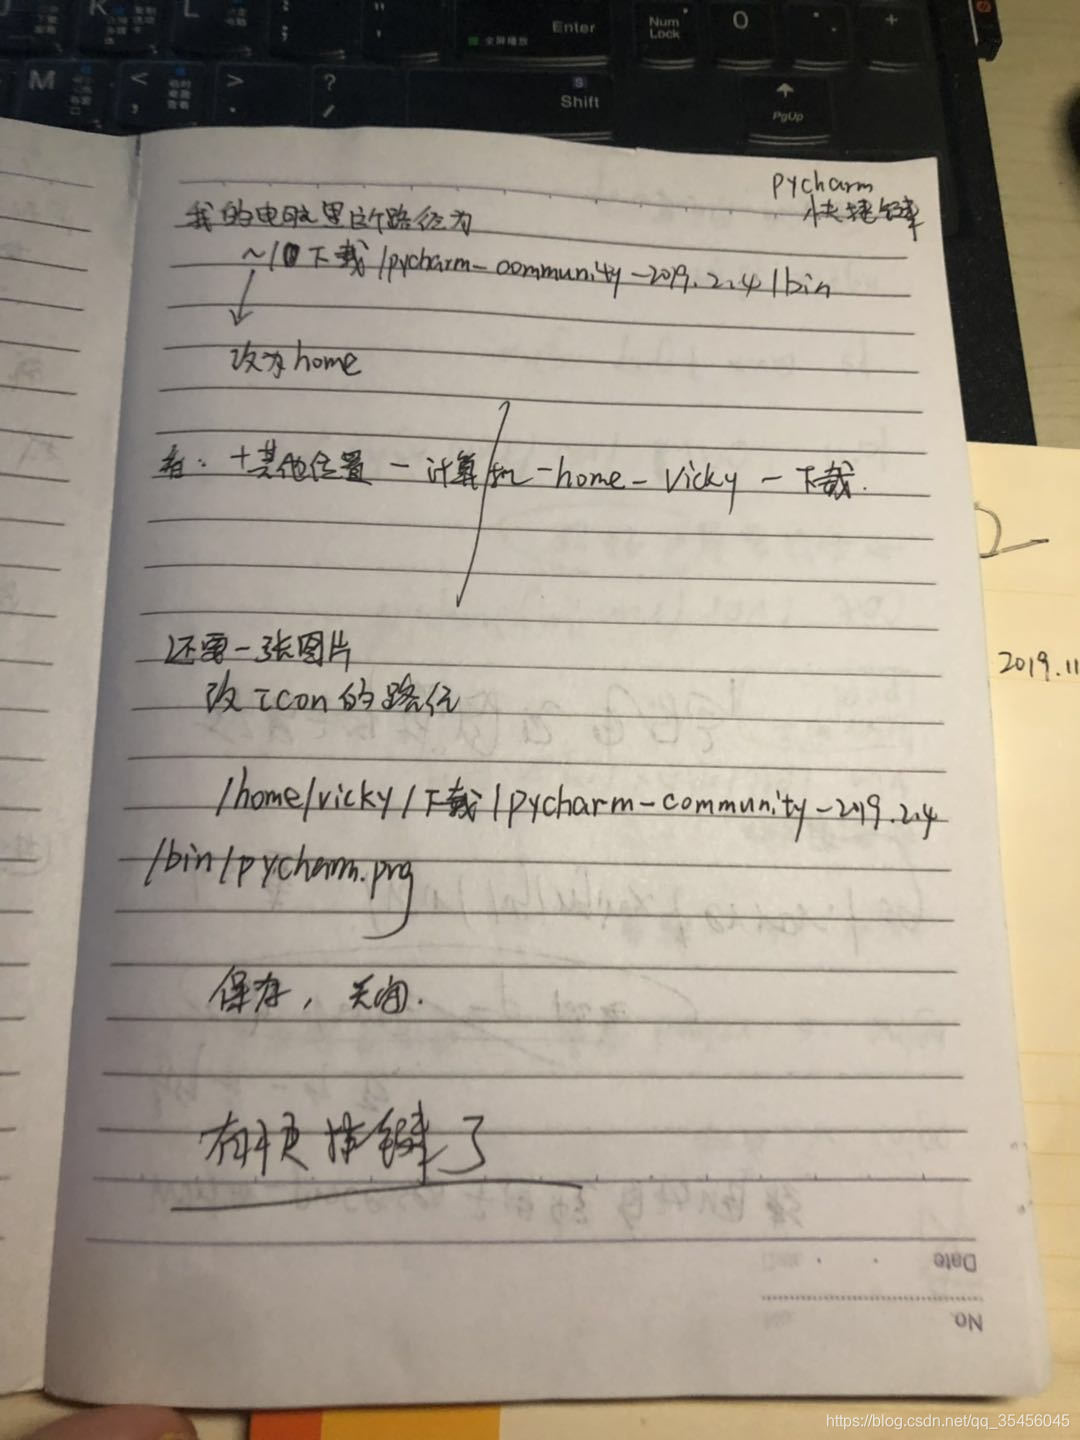 Enter
Num
Lock
0
+
M
?
Shift
PgUp
pycharm
快捷键
我的电脑里这个路径为
~/下载/pycharm-community-2019.2.4/bin
改为home
看：+其他位置-计算机-home-Vicky-下载.
还需一张图片
改icon的路径
2019.11
/home/vicky/下载/pycharm-community-2019.2.4
/bin/pycharm.png
保存，关闭.
有快捷键了
Date
No.
https://blog.csdn.net/qq_35456045